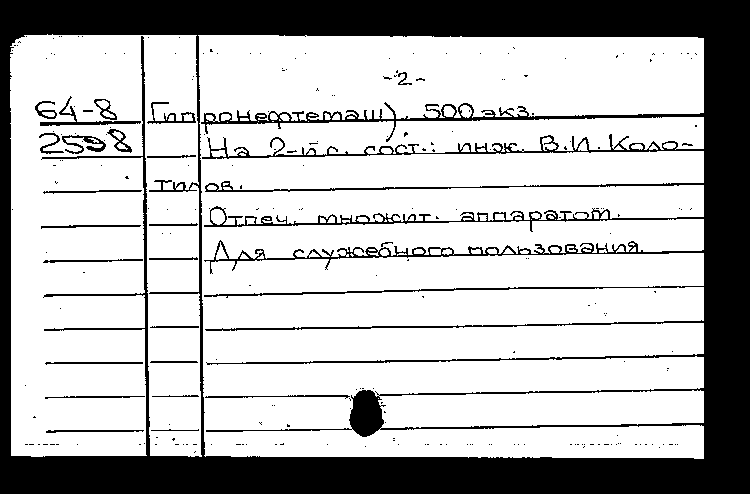 -2-
64-8 Гипронефтемаш). 500 экз.
2598 На 2-й с. сост.: инж. В.И. Коло-
тилов.
Отпеч. множит. аппаратом.
Для служебного пользования.